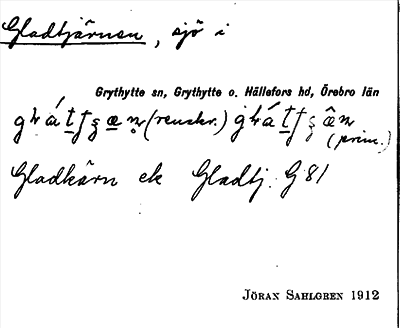 Gladtjärnen, sjö i
Grythytte sn, Grythytte o. Hällefors hd, Örebro län
(renskr.)
(prim.)
Gladkärn ek Gladtj. G 81
JÖRAN SAHLGREN 1912